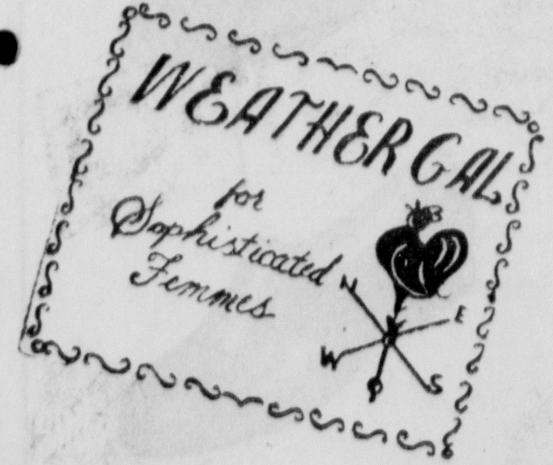 WEATHER GAL
for
Sophisticated
Femmes
N
E
W
S